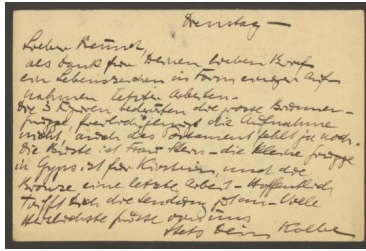 Dienstag
Lieber Freund,
als Dank für Deinen lieben Brief
ein Lebenszeichen in Form einiger Auf-
nahmen letzter Arbeiten.
Die 3 Figuren bedürfen die Brunnen-
gruppe, die Aufnahme
nicht, auch das Postament fehlt ja noch.
Die Büste ist Frau Stern - die kleine Gruppe
in Gyps ist für, und die
Bronze eine letzte Arbeit - Hoffentlich
trifft Dich die Sendung an - Viele
herzlichste Grüsse von uns
Stets Dein Kolbe